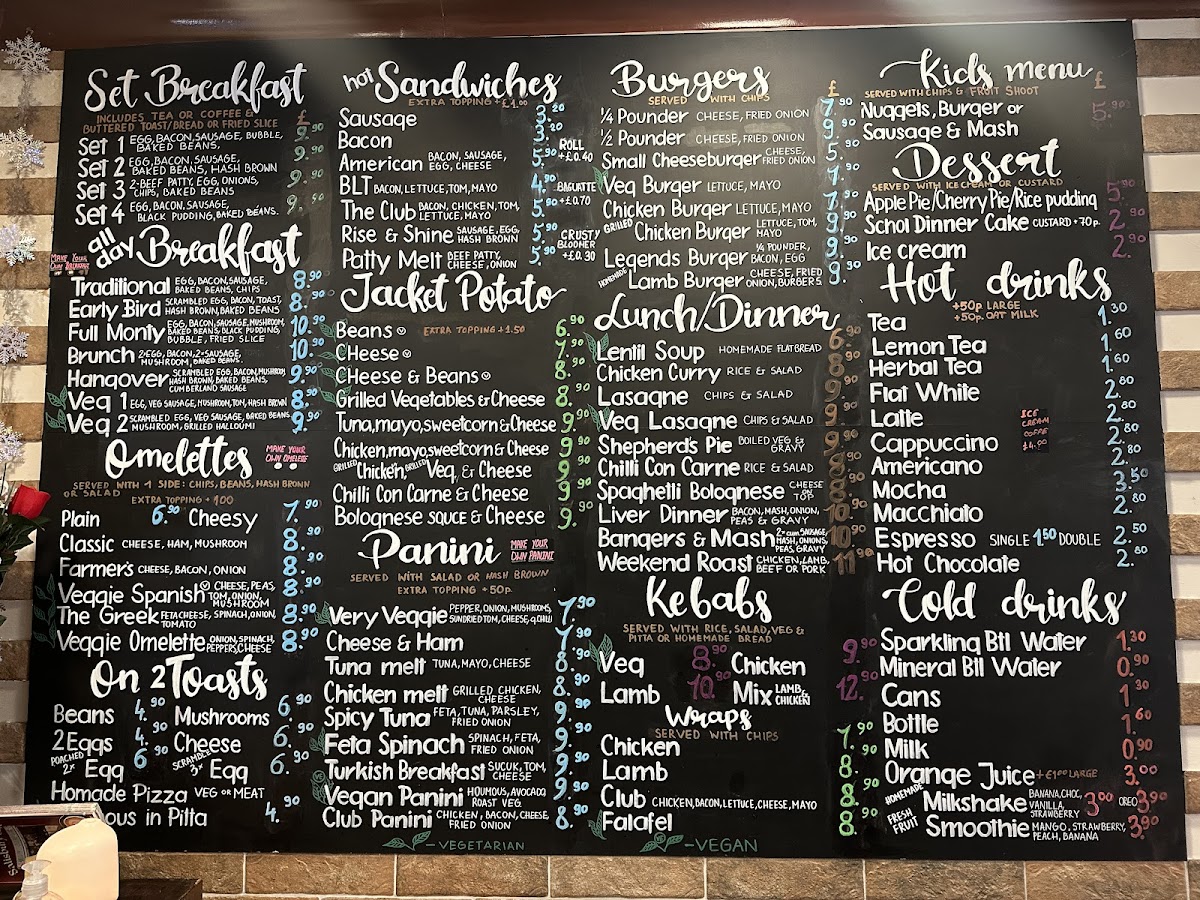 Set Breakfast
INCLUDES TEA OR COFFEE &
BUTTERED TOAST/BREAD OR FRIED SLICE £
Set 1 EGG, BACON, SAUSAGE, BUBBLE, BAKED BEANS, 9.90
Set 2 EGG, BACON, SAUSAGE, BAKED BEANS, HASH BROWN 9.90
Set 3 2-BEEF PATTY, EGG, ONIONS, CHIPS, BAKED BEANS 9.90
Set 4 EGG, BACON, SAUSAGE, BLACK PUDDING, BAKED BEANS. 9.90
all day Breakfast
MAKE YOUR OWN BREAKFAST
Traditional EGG, BACON, SAUSAGE, BAKED BEANS, CHIPS 8.90
Early Bird SCRAMBLED EGG, BACON, TOAST, HASH BROWN, BAKED BEANS 8.90
Full Monty EGG, BACON, SAUSAGE, MUSHROOM, BAKED BEANS, BLACK PUDDING, BUBBLE, FRIED SLICE 10.90
Brunch 2-EGG, BACON, 2-SAUSAGE, MUSHROOM, BAKED BEANS. 10.90
Hangover SCRAMBLED EGG, BACON, MUSHROOM, HASH BROWN, BAKED BEANS, CUMBERLAND SAUSAGE 9.90
Veg 1 EGG, VEG SAUSAGE, MUSHROOM, TOM, HASH BROWN 8.90
Veg 2 SCRAMBLED EGG, VEG SAUSAGE, BAKED BEANS, MUSHROOM, GRILLED HALLOUMI 9.90
Omelettes
MAKE YOUR OWN OMELETTE
SERVED WITH 1 SIDE: CHIPS, BEANS, HASH BROWN
OR SALAD
EXTRA TOPPING + 1.00
Plain 6.90 Cheesy 7.90
Classic CHEESE, HAM, MUSHROOM 8.90
Farmer's CHEESE, BACON, ONION 8.90
Veggie Spanish CHEESE, PEAS, TOM, ONION, MUSHROOM 8.90
The Greek FETA CHEESE, SPINACH, ONION, TOMATO 8.90
Veggie Omelette ONION, SPINACH, PEPPERS, CHEESE 8.90
On 2 Toasts
Beans 4.90 Mushrooms 6.90
2 Eggs 4.90 Cheese 6.90
POACHED 2x Egg 6.90 SCRAMBLE 3x Egg 6.90
Homade Pizza VEG OR MEAT
ous in Pitta 4.90
hot Sandwiches
EXTRA TOPPING + £1.00
Sausage 3.20
Bacon 3.20
American BACON, SAUSAGE, EGG, CHEESE 5.90
BLT BACON, LETTUCE, TOM, MAYO 4.90
The Club BACON, CHICKEN, TOM, LETTUCE, MAYO 5.90
Rise & Shine SAUSAGE, EGG, HASH BROWN 5.90
Patty Melt BEEF PATTY, CHEESE, ONION 5.90
ROLL +£0.40
BAGUETTE +£0.70
CRUSTY BLOOMER +£0.30
Jacket Potato
Beans V EXTRA TOPPING + 1.50 6.90
Cheese V 7.90
Cheese & Beans V 8.90
Grilled Vegetables & Cheese 8.90
Tuna, mayo, sweetcorn & Cheese 9.90
Chicken, mayo, sweetcorn & Cheese 9.90
GRILLED Chicken, GRILLED Veg, & Cheese 9.90
Chilli Con Carne & Cheese 9.90
Bolognese SQUCE & Cheese 9.90
Panini
MAKE YOUR OWN PANINI
SERVED WITH SALAD OR HASH BROWN
EXTRA TOPPING + 50p
Very Veggie PEPPER, ONION, MUSHROOMS, SUNDRIED TOM, CHEESE, & CHILLI 7.90
Cheese & Ham 7.90
Tuna melt TUNA, MAYO, CHEESE 8.90
Chicken melt GRILLED CHICKEN, CHEESE 8.90
Spicy Tuna FETA, TUNA, PARSLEY, FRIED ONION 9.90
Feta Spinach SPINACH, FETA, FRIED ONION 9.90
Turkish Breakfast SUCUK, TOM, CHEESE 9.90
Vegan Panini HOUMOUS, AVOCADO, ROAST VEG 9.90
Club Panini CHICKEN, BACON, CHEESE, FRIED ONION 8.90
- VEGETARIAN
Burgers
SERVED WITH CHIPS £
1/4 Pounder CHEESE, FRIED ONION 7.90
1/2 Pounder CHEESE, FRIED ONION 9.90
Small Cheeseburger CHEESE, FRIED ONION 5.90
Veg Burger LETTUCE, MAYO 7.90
Chicken Burger LETTUCE, MAYO 7.90
GRILLED Chicken Burger LETTUCE, TOM, MAYO 9.90
Legends Burger 1/4 POUNDER, BACON, EGG 9.90
HOMEMADE Lamb Burger CHEESE, FRIED ONION, BURGER S. 9.90
Lunch/Dinner
Lentil Soup HOMEMADE FLATBREAD 6.90
Chicken Curry RICE & SALAD 8.90
Lasagne CHIPS & SALAD 9.90
Veg Lasagne CHIPS & SALAD 9.90
Shepherd's Pie BOILED VEG & GRAVY 9.90
Chilli Con Carne RICE & SALAD 9.90
Spaghetti Bolognese CHEESE TOP
Liver Dinner BACON, MASH, ONION, PEAS & GRAVY 10.90
Bangers & Mash 2x CUM. SAUSAGE, MASH, ONIONS, PEAS, GRAVY 10.90
Weekend Roast CHICKEN, LAMB, BEEF OR PORK 11.90
Kebabs
SERVED WITH RICE, SALAD, VEG &
PITTA OR HOMEMADE BREAD
Veg 8.90 Chicken 9.90
Lamb 10.90 Mix LAMB & CHICKEN 12.90
Wraps
SERVED WITH CHIPS
Chicken 7.90
Lamb 8.90
Club CHICKEN, BACON, LETTUCE, CHEESE, MAYO 8.90
Falafel 8.90
VG - VEGAN
Kids menu
SERVED WITH CHIPS & FRUIT SHOOT £
Nuggets, Burger or 5.90
Sausage & Mash
Dessert
SERVED WITH ICE CREAM OR CUSTARD
Apple Pie/Cherry Pie/Rice pudding 5.90
Schol Dinner Cake CUSTARD + 70p 2.90
Ice cream 2.90
Hot drinks
+50p LARGE
+50p OAT MILK
Tea 1.30
Lemon Tea 1.60
Herbal Tea 1.60
Flat White 2.80
Latte 2.80
Cappuccino 2.80
Americano 2.80
Mocha 3.50
Macchiato 2.80
Espresso SINGLE 1.80 DOUBLE 2.50
Hot Chocolate 2.80
ICE CREAM COFFE £4.90
Cold drinks
Sparkling Btl Water 1.30
Mineral Btl Water 0.90
Cans 1.30
Bottle 1.60
Milk 0.90
Orange Juice + £1.00 LARGE 3.00
HOMEMADE Milkshake BANANA, CHOC, VANILLA, STRAWBERRY 3.00 OREO 3.90
FRESH FRUIT Smoothie MANGO, STRAWBERRY, PEACH, BANANA 3.90